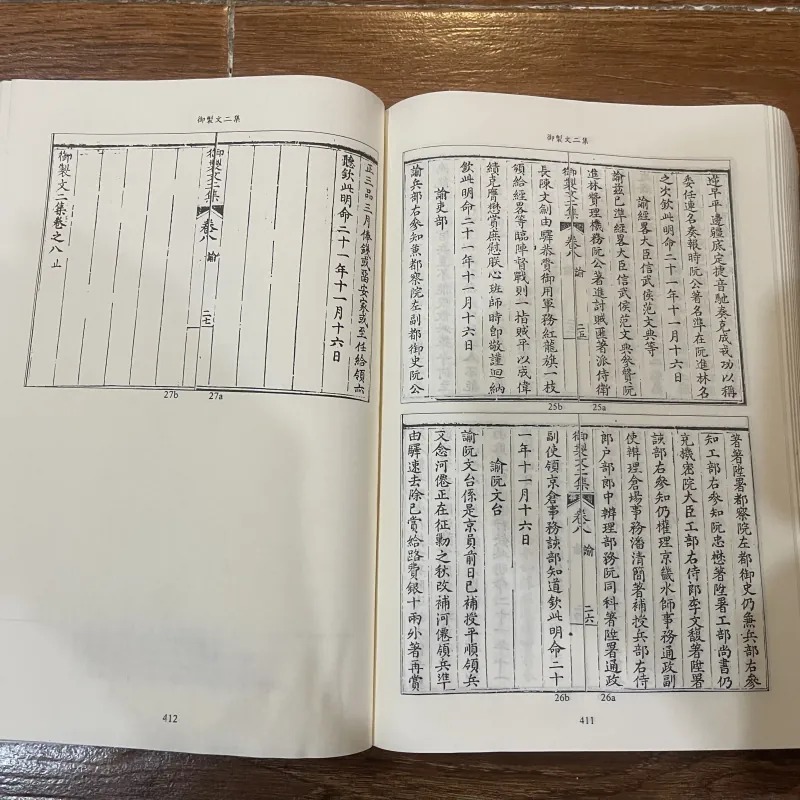 御製文二集
遄早平邊疆底定捷音馳奏克成戎功以稱
委任連名奏報時阮公著名準在阮進林名
之次欽此明命二十一年十一月十六日
諭經畧大臣信武侯范文典等
諭茲已準經畧大臣信武侯范文典參贊阮
進林贊理機務阮公著進討賊匪著派侍衛
御製文二集 卷八 諭 二五
長陳文制由驛恭賫御用軍務紅龍旗一枝
領給經畧等臨陣督戰則一指賊平以成偉
績克膺懋賞庶慰朕心班師時即敬謹迴納
欽此明命二十一年十一月十六日
諭吏部
諭兵部右參知兼都察院左副都御史阮公
25b 25a
著著陞署都察院左都御史仍兼兵部右參
知工部右參知阮忠懋著陞署工部尚書仍
充機密院大臣工部右侍郎李文馥著陞署
該部右參知仍權理京畿水師事務通政副
使辦理倉場事務潘清簡著補授兵部右侍
郎户部郎中辦理部務阮同科著陞署通政
御製文二集 卷八 諭 二六
副使領京倉事務該部知道欽此明命二十
一年十一月十六日
諭阮文台
諭阮文台係是京員前日已補授平順領兵
又念河僊正在征勦之秋改補河僊領兵準
由驛速去除已賞給路費銀十兩外著再賞
26b 26a
411
御製文二集
正三品三月俸銀或畱安家或至任給領亦
聽欽此明命二十一年十一月十六日
御製文二集 卷八 諭 二七
御製文二集卷之八 止
27b 27a
412